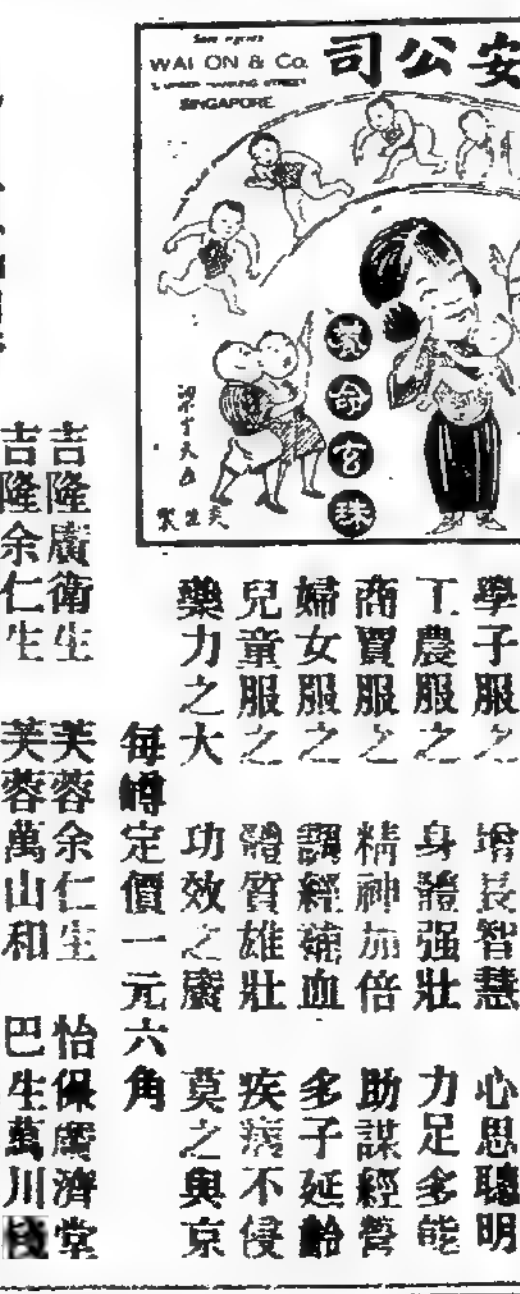 安公司
Sole Agents
WAI ON & Co.
SINGAPORE
奇
玄
珠
學子服之　增長智慧　心思聰明
工農服之　身體强壯　力足多能
商賈服之　精神加倍　助謀經營
婦女服之　調經補血　多子延齡
兒童服之　體質雄壯　疾病不侵
藥力之大　功效之廣　莫之與京
每罇定價一元六角
吉隆廣衛生　芙蓉余仁生　怡保廣濟堂
吉隆余仁生　芙蓉萬山和　巴生萬川